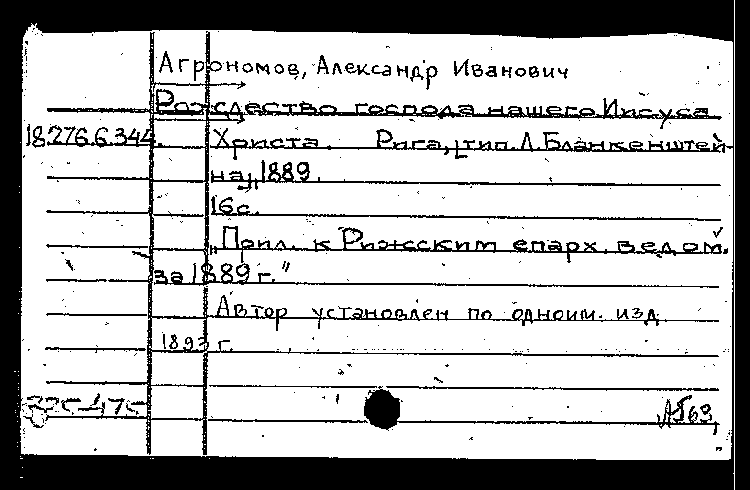 Агрономов, Александр Иванович
Рождество господа нашего Иисуса
18.276.6.344. Христа. Рига, тип. Л. Бланкенштей-
на, 1889.
16 с.
„Прил. к Рижским епарх. ведом.
за 1889 г."
Автор установлен по одноим. изд.
1893 г.